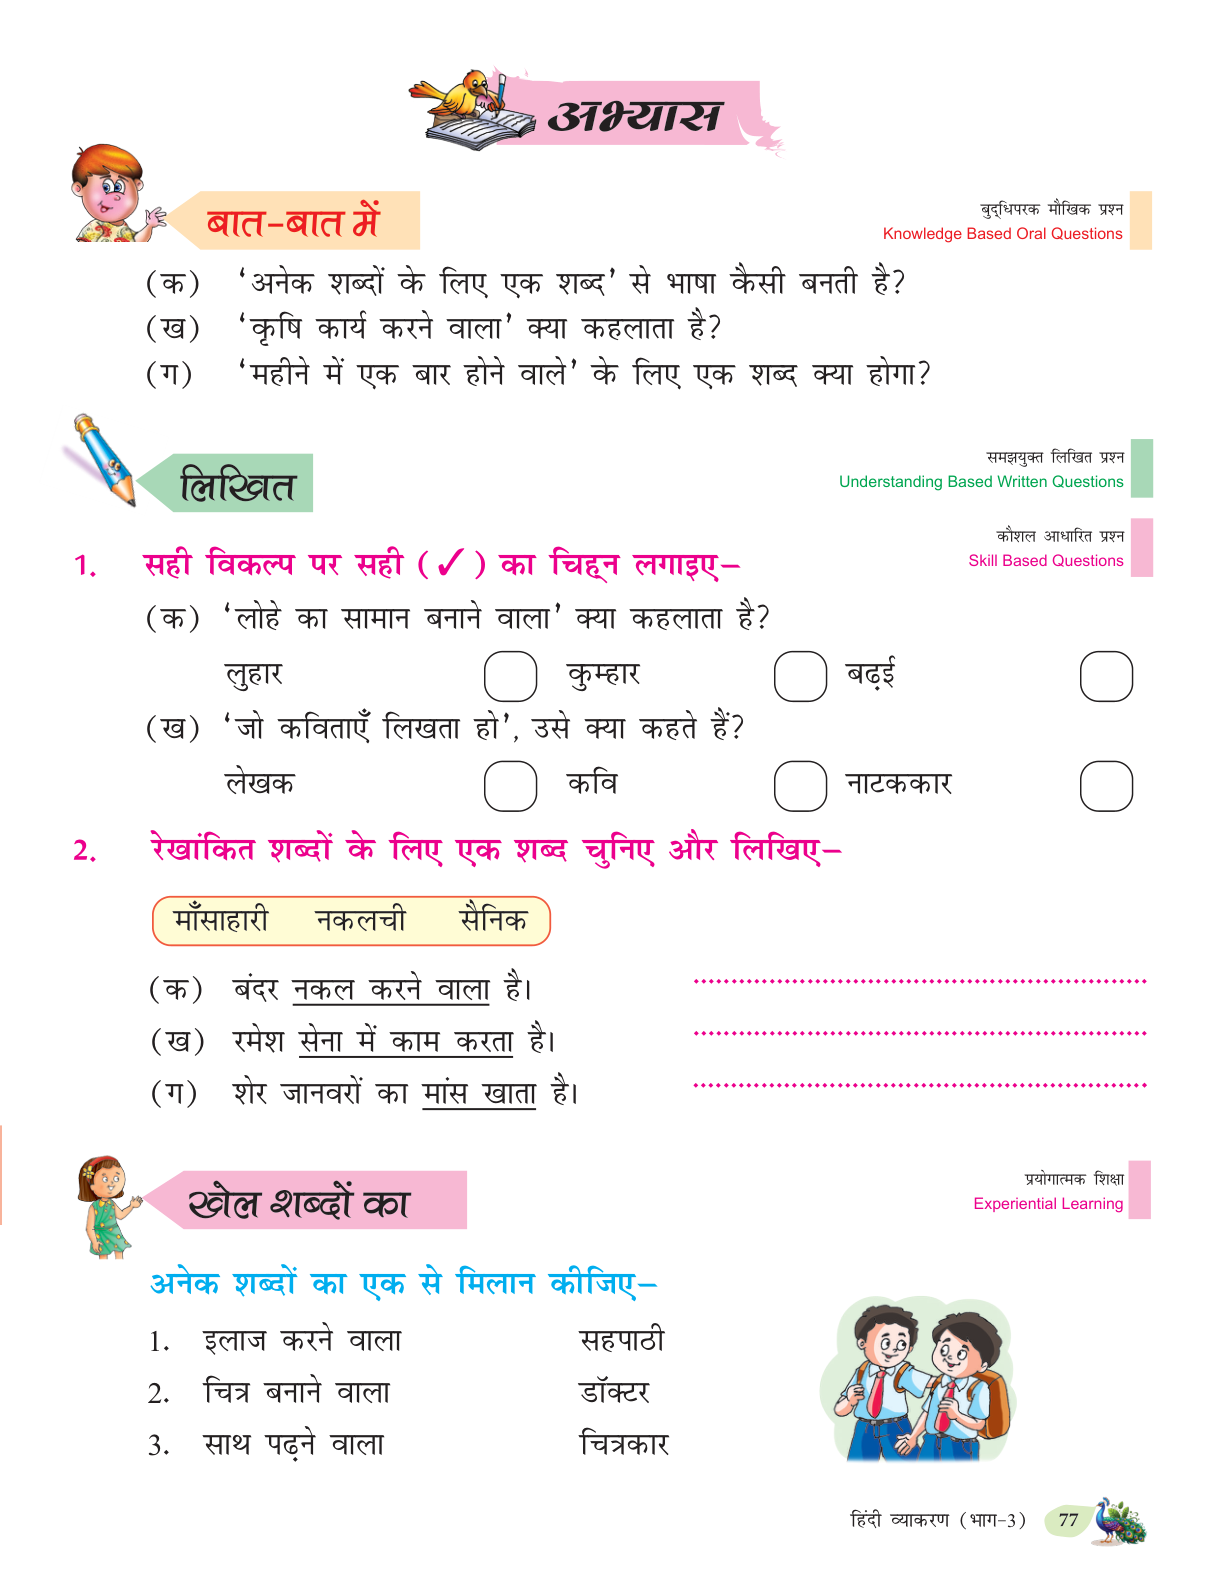 अभ्यास
बात-बात में
बुद्धिपरक मौखिक प्रश्न
Knowledge Based Oral Questions
(क) ‘अनेक शब्दों के लिए एक शब्द’ से भाषा कैसी बनती है?
(ख) ‘कृषि कार्य करने वाला’ क्या कहलाता है?
(ग) ‘महीने में एक बार होने वाले’ के लिए एक शब्द क्या होगा?
लिखित
समझयुक्त लिखित प्रश्न
Understanding Based Written Questions
कौशल आधारित प्रश्न
Skill Based Questions
1. सही विकल्प पर सही (✓) का चिह्न लगाइए–
(क) ‘लोहे का सामान बनाने वाला’ क्या कहलाता है?
लुहार कुम्हार बढ़ई
(ख) ‘जो कविताएँ लिखता हो’, उसे क्या कहते हैं?
लेखक कवि नाटककार
2. रेखांकित शब्दों के लिए एक शब्द चुनिए और लिखिए–
माँसाहारी नकलची सैनिक
(क) बंदर नकल करने वाला है।
(ख) रमेश सेना में काम करता है।
(ग) शेर जानवरों का मांस खाता है।
खेल शब्दों का
प्रयोगात्मक शिक्षा
Experiential Learning
अनेक शब्दों का एक से मिलान कीजिए–
1. इलाज करने वाला सहपाठी
2. चित्र बनाने वाला डॉक्टर
3. साथ पढ़ने वाला चित्रकार
हिंदी व्याकरण (भाग-3) 77